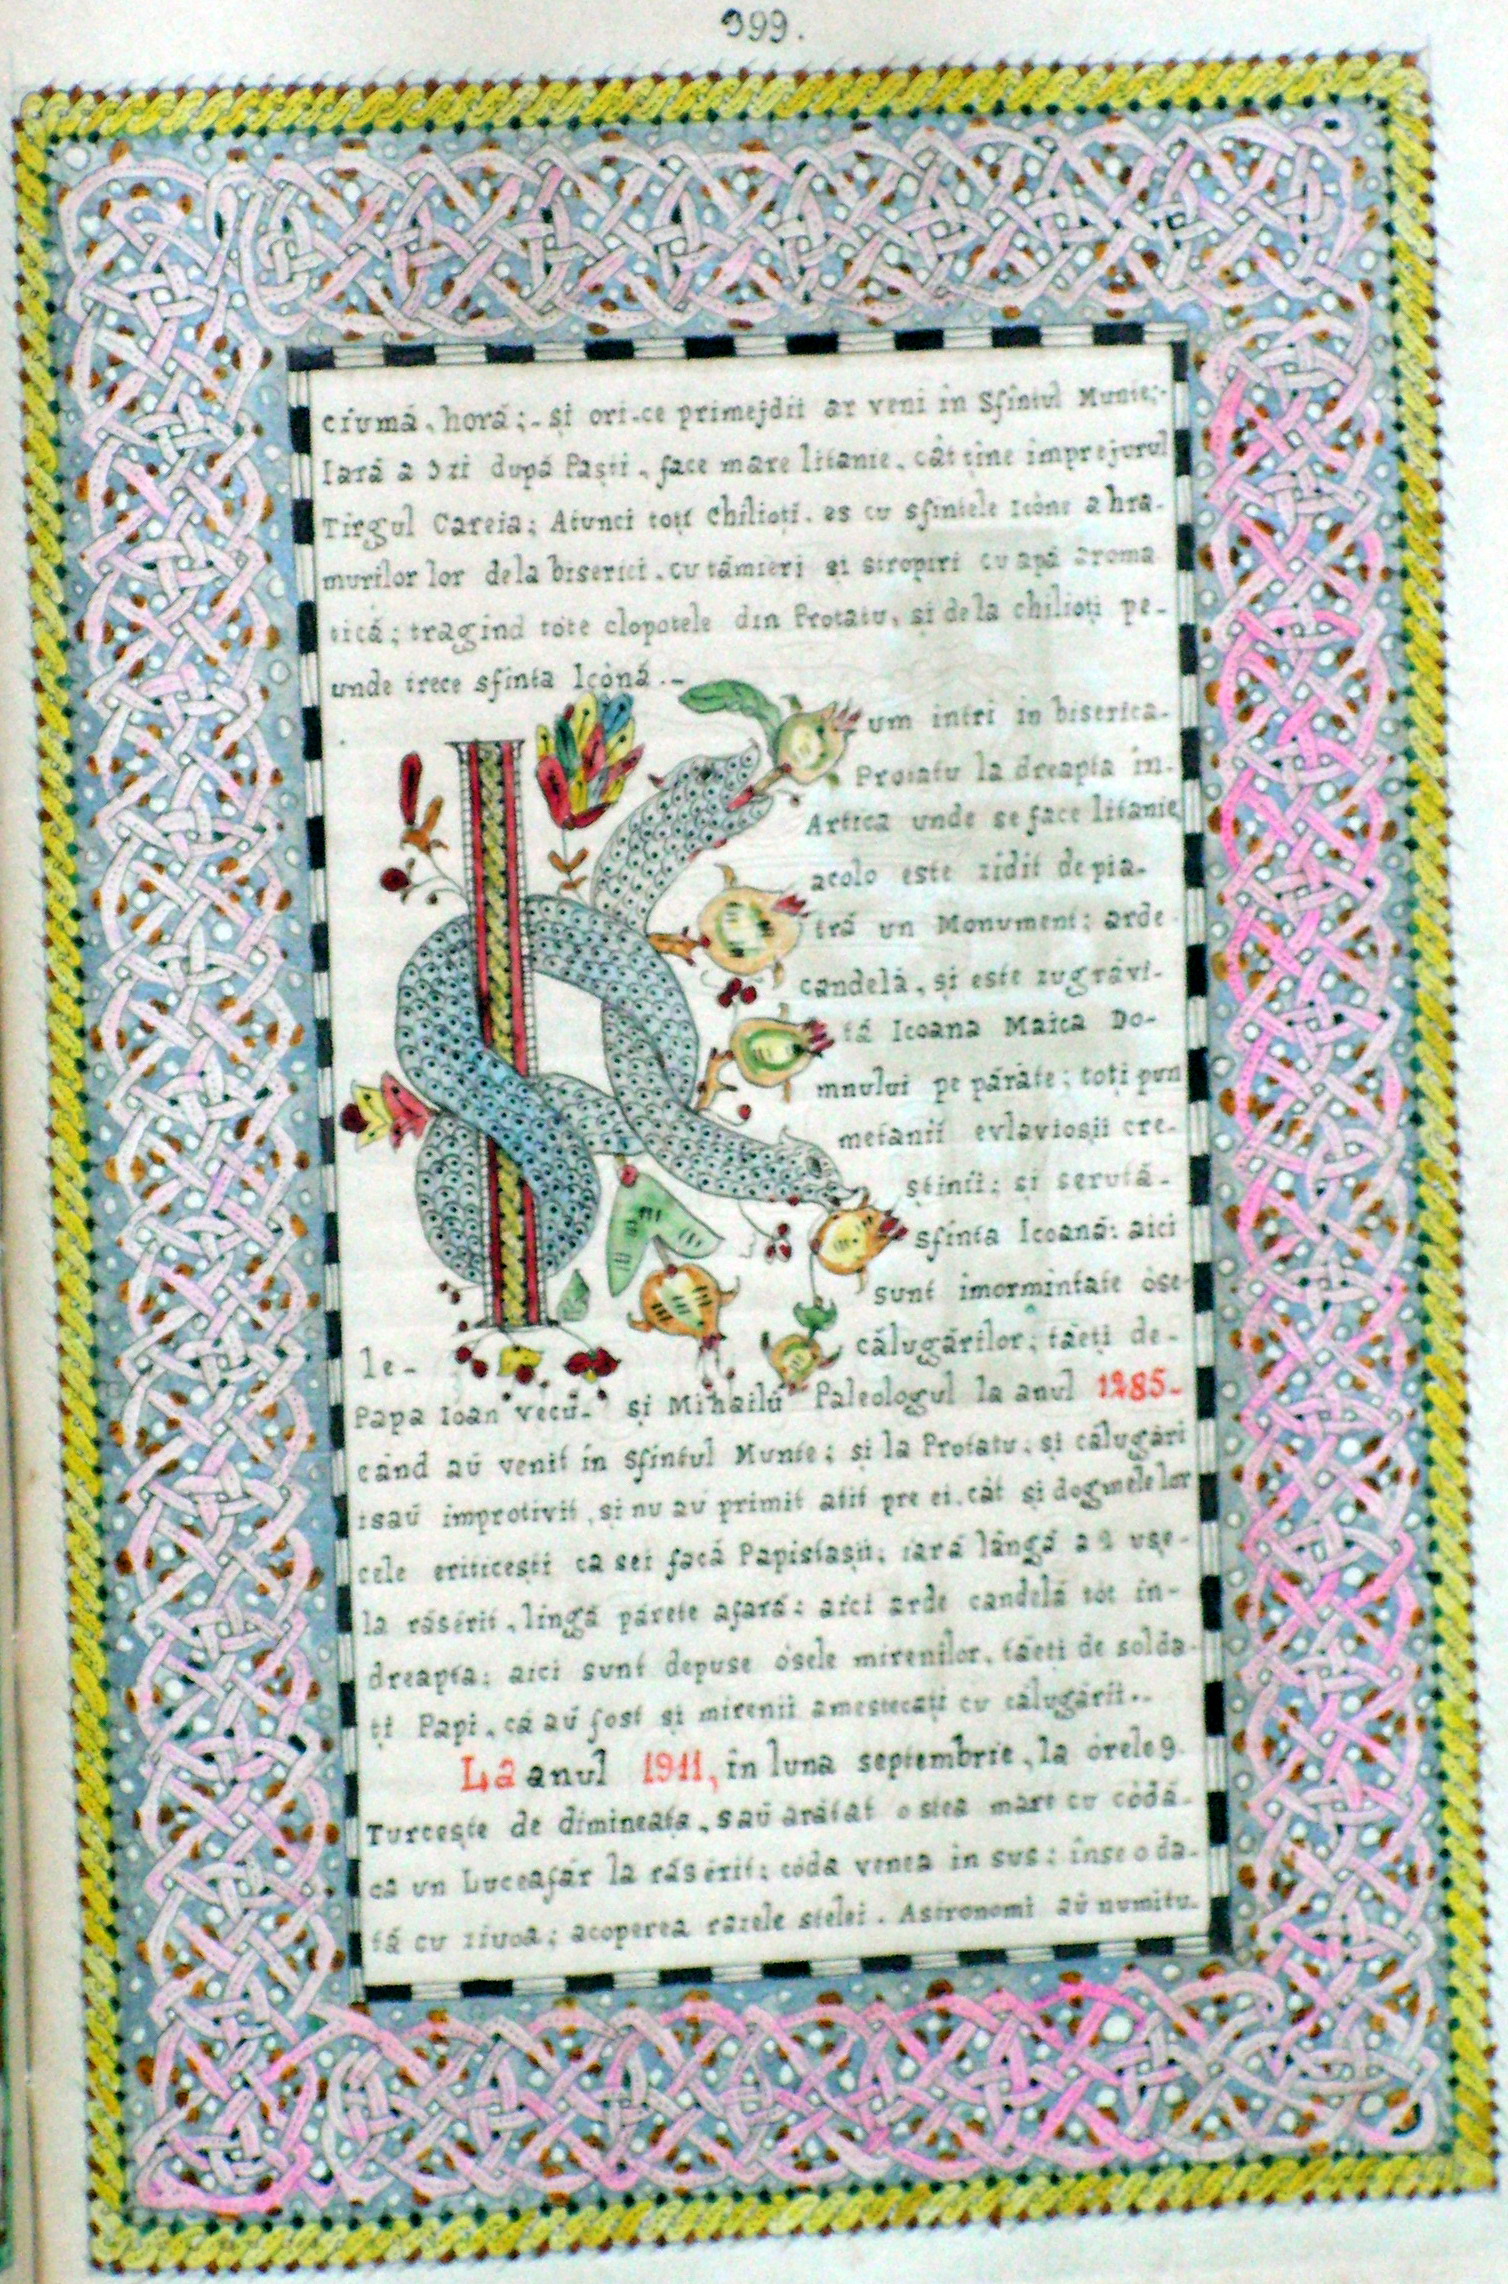 399.
ciumă, horă;- și ori-ce primejdii ar veni in Sfintul Munte;-
Iară a 3 zi după Paști, face mare litanie, cât ține imprejurul
Tirgul Careia; Atunci toți Chilioți, es cu sfintele Icòne a hra-
murilor lor dela biserici, cu tămieri și stropiri cu apă aroma
tică; tragind tote clopotele din Protatu, și de la chilioți pe-
unde trece sfinta Icònă.-
um intri in biserica-
Protatu la dreapta in-
Artica unde se face litanie
acolo este zidit de pia-
tră un Monument; arde
candelă, și este zugrăvi-
tă Icoana Maica Do-
mnului pe părate; toți pun
metanii evlavioșii cre-
știnii; și serută-
sfinta Icoană: aici
sunt imormintate òse-
le-
călugărilor; tăeți de-
Papa Ioan "vecŭ-" și Mihailŭ Paleologul la anul 1285-
când aŭ venit in Sfintul Munte; și la Protatu, și călugări
isaŭ improtivit, și nu aŭ primit atit pre ei, cât și dogmele lor
cele eriticești ca sei facă Papistașii; iară lângă a 2 ușe-
la răsèrit, lingă părete afară: aici arde candelă tot in-
dreapta; aici sunt depuse òsele mirenilor, tăeți de solda-
ți Papi, că aŭ fost și mirenii amestecați cu călugării.-
La anul 1911, în luna septembrie, la òrele 9
Turcește de dimineața, saŭ arătat o stea mare cu còdă-
ca un Luceafăr la răsèrit; còda venea in sus; înse o da-
tă cu ziuoa; acoperea razele stelei. Astronomi aŭ numitu-